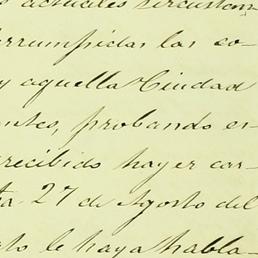 s actuales circustan
errumpidas las co-
y aquella Ciudad
entes, probando es
recibido hayer car-
ta 27 de Agosto del
sto le haya habla-